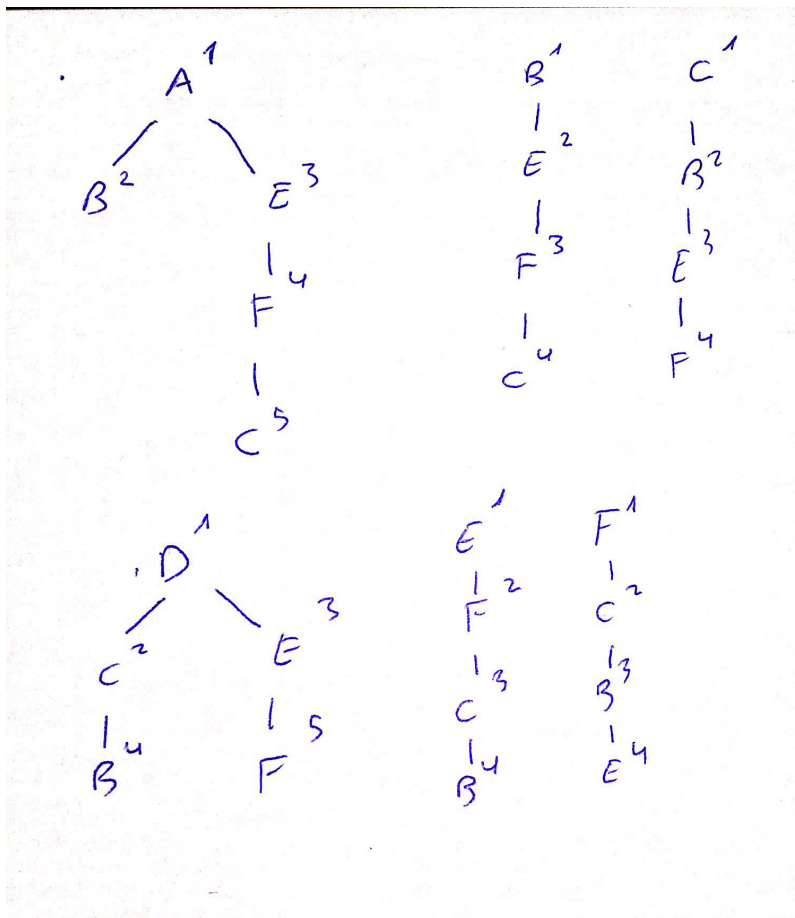 A¹
B² E³
F⁴
C⁵
B¹
E²
F³
C⁴
C¹
B²
E³
F⁴
D¹
C² E³
B⁴ F⁵
E¹
F²
C³
B⁴
F¹
C²
B³
E⁴